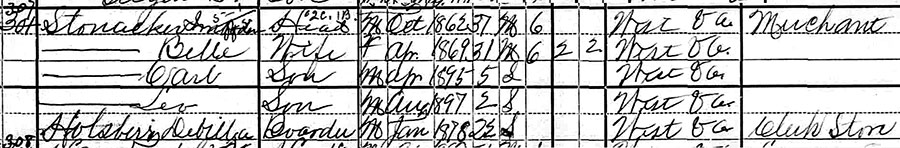 Stonaker Head M Oct 1862 37 M 6 West Va Merchant
Belle Wife F Apr 1869 31 M 6 2 2 West Va
Carl Son M Apr 1895 5 S West Va
Leo Son M Aug 1897 2 S West Va
Holsberry Boarder M Jan 1878 22 S West Va Clerk Store